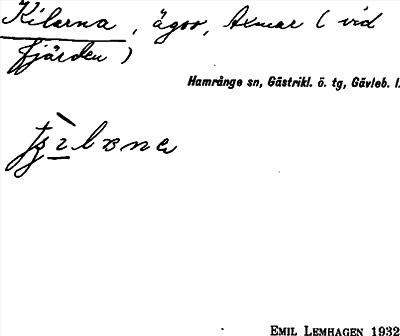 Kilarna, ägor, Axmar (vid
fjärden)
Hamrånge sn, Gästrikl. ö. tg, Gävleb. l.
EMIL LEMHAGEN 1932